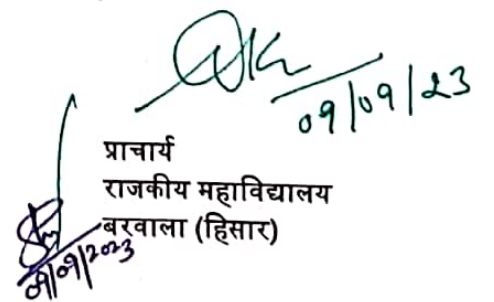 09/09/23
प्राचार्य
राजकीय महाविद्यालय
बरवाला (हिसार)
09/09/2023